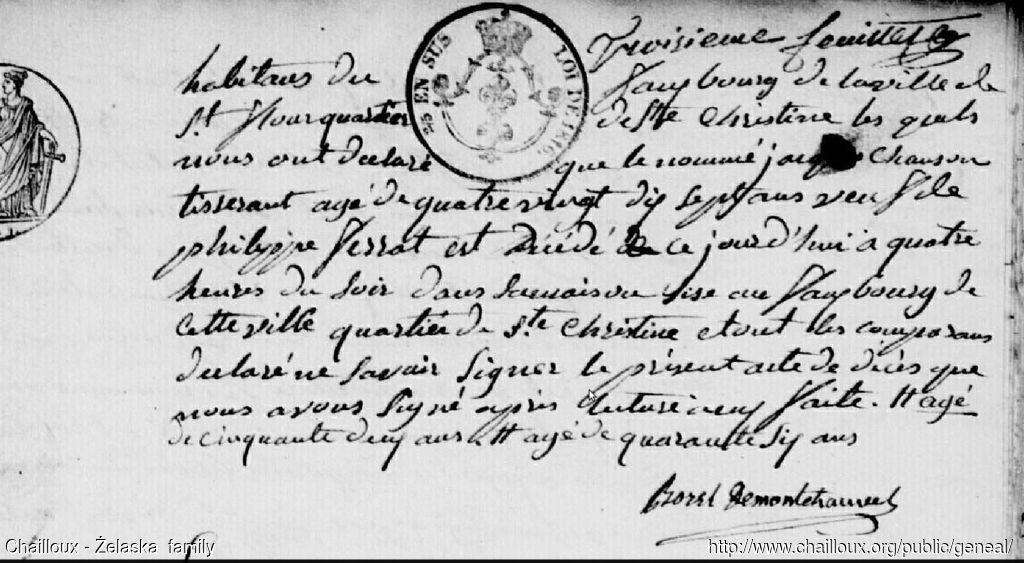 Troisieme feuillet
habitans du fauxbourg de la ville de
St flour quartier de Ste Christine les quels
nous ont declaré que le nommé jacques Chanson
tisserant agé de quatre vingt dix sept ans veuf de
philippe ferrat est décédé ce jourd'hui à quatre
heures du soir dans sa maison sise au fauxbourg de
Cette ville quartier de Ste Christine et ont les comparans
declaré ne savoir signer le présent acte de décès que
nous avons signé après lecture à eux faite. # agé
de cinquante deux ans # agé de quarante six ans
Borel Demontchauvel
25 EN SUS
LOI DE
Chailloux - Żelaska family
http://www.chailloux.org/public/geneal/